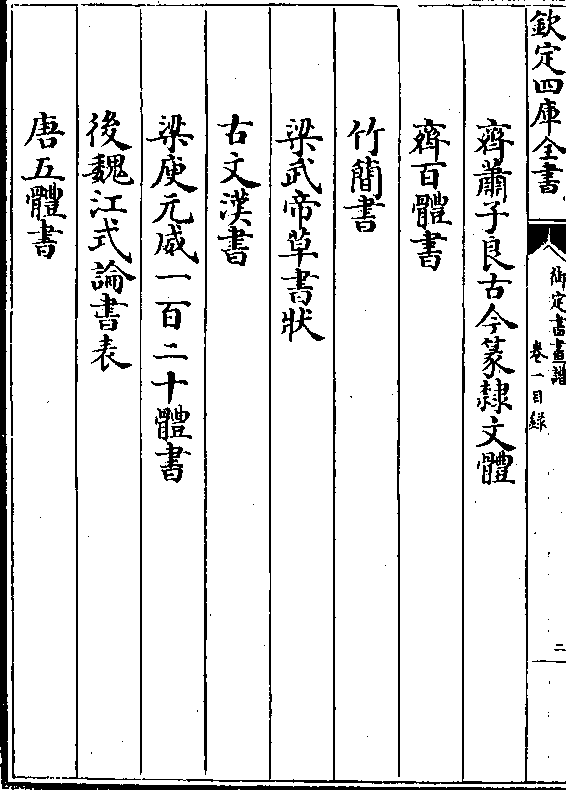 欽定四庫全書
御定書畫譜
卷一目錄
二
齊蕭子良古今篆隸文體
齊百體書
竹簡書
梁武帝草書狀
古文漢書
梁庾元威一百二十體書
後魏江式論書表
唐五體書